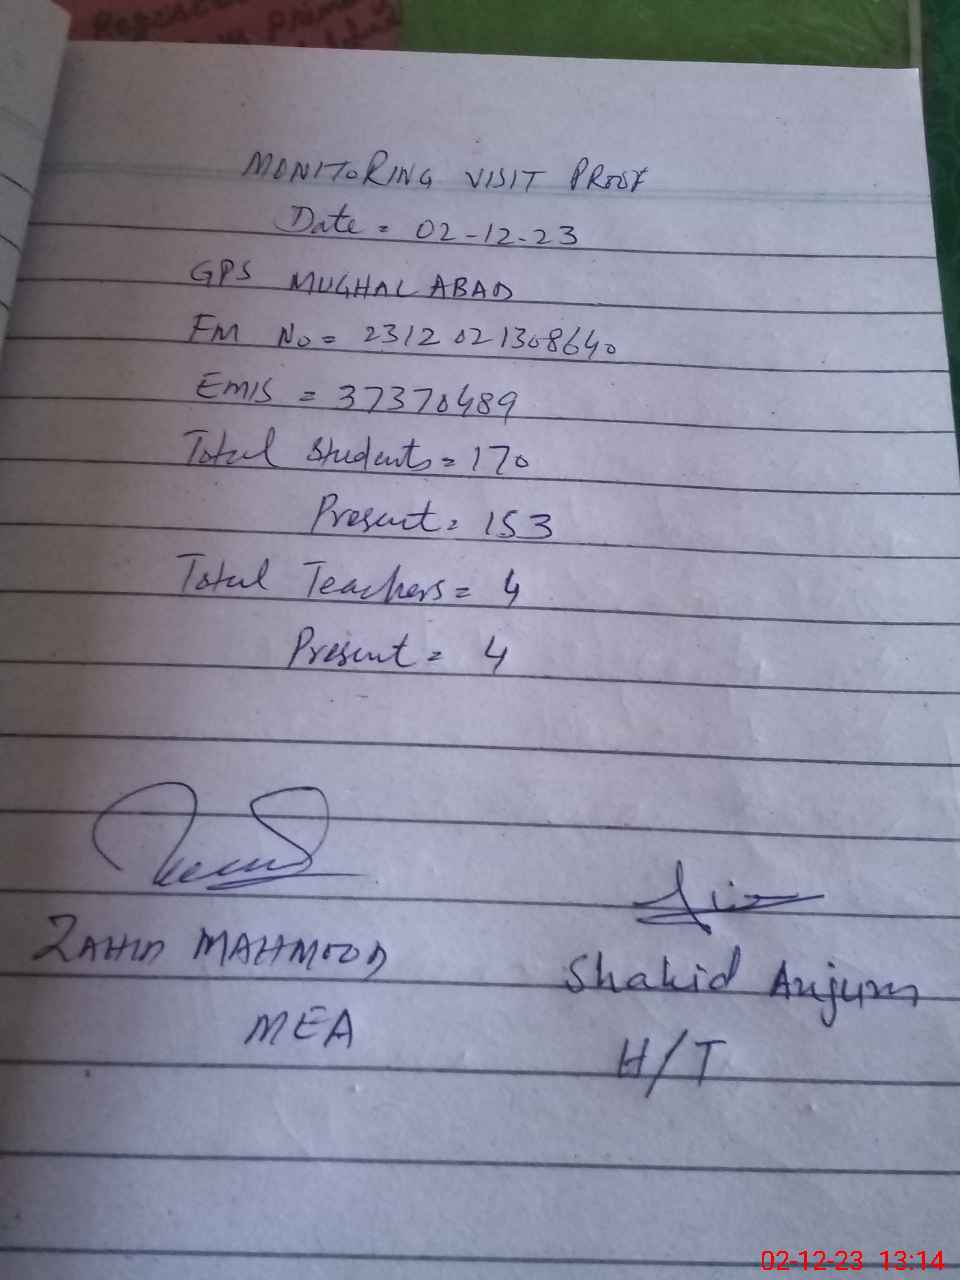 MONITORING VISIT PROOF
Date = 02-12-23
GPS MUGHAL ABAD
FM No = 2312021308640
EMIS = 37370489
Total Students = 170
Present = 153
Total Teachers = 4
Present = 4
ZAHID MAHMOOD
MEA
Shahid Anjum
H/T
02-12-23 13:14